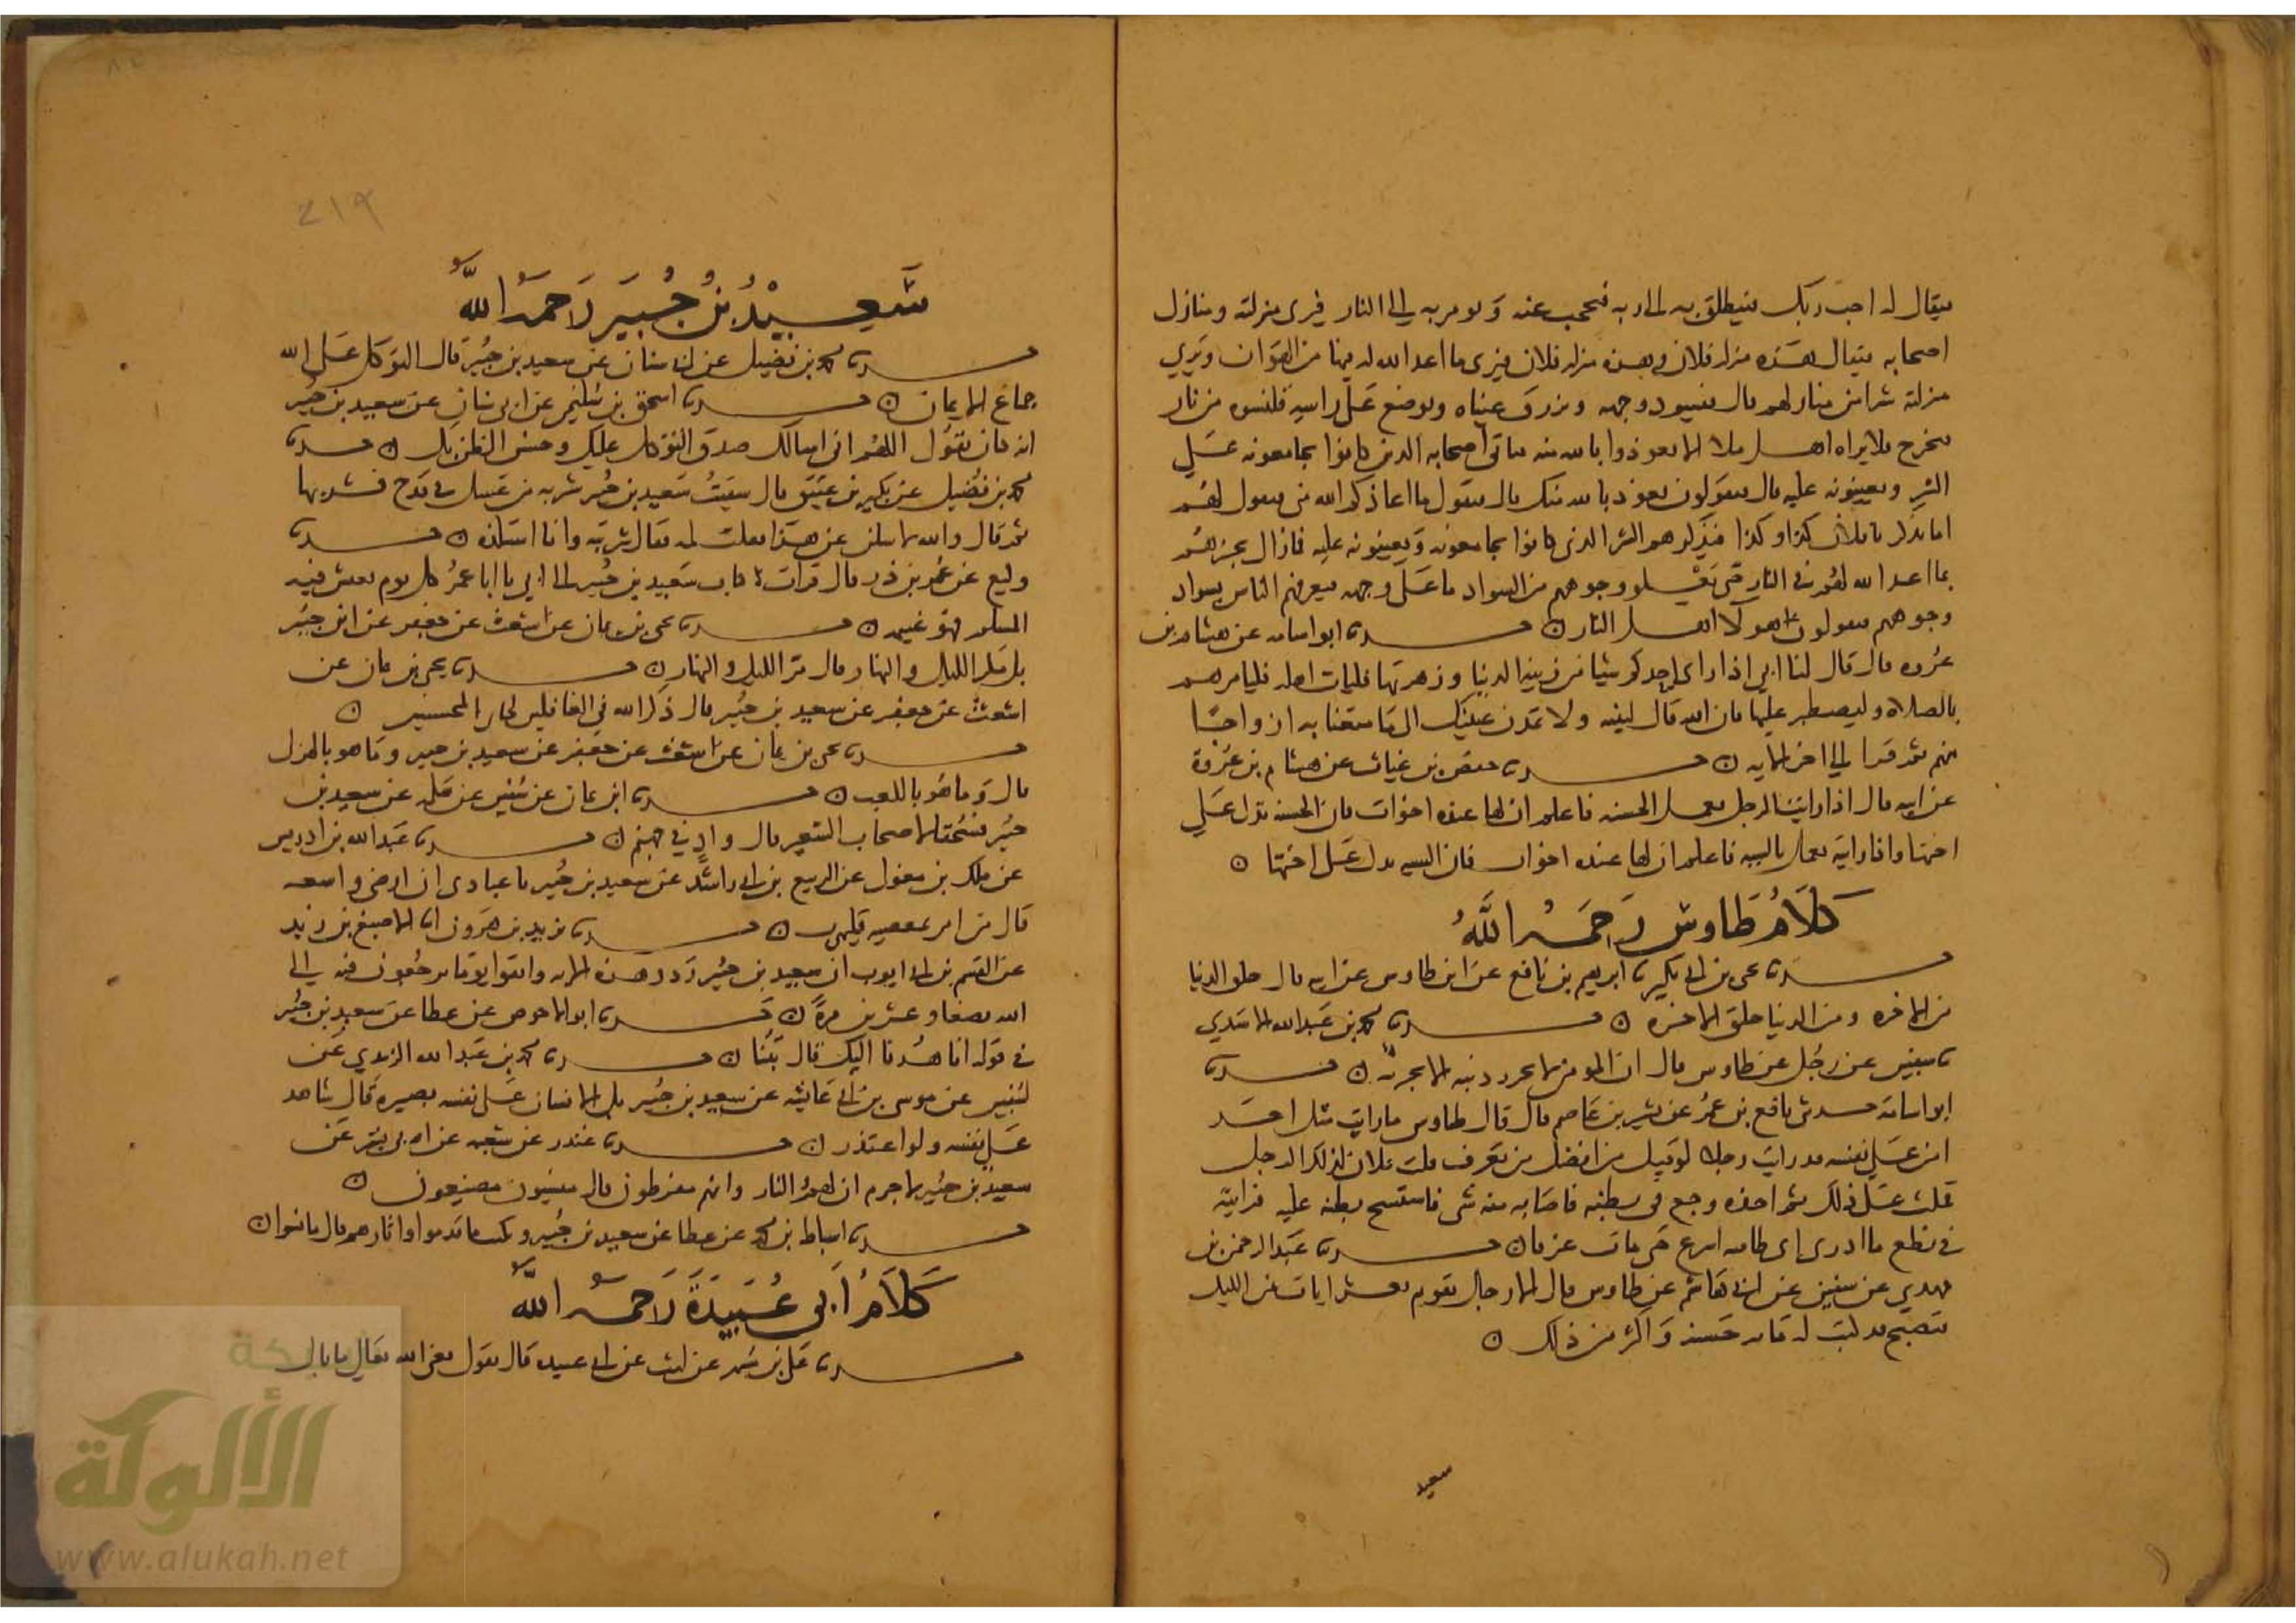 فيقال له اجب ربك فينطلق به الى ربه فيحجب عنه ويومر به الى النار فيرى منزلته ومنازل
اصحابه فيقال هذه منزلة فلان وهذه منزلة فلان فيرى ما اعد الله له فيها من الهوان ويرى
منزلته شرا من منازلهم قال فيسود وجهه وتزرق عيناه ويوضع على راسه قلنسوه من نار
فيخرج فلا يراه اهل ملا الا تعوذوا بالله منه فياتي اصحابه الذين كانوا يجامعونه على
الشر ويعينونه عليه قال فيقولون نعوذ بالله منك قال فيقول ما اعاذكم الله مني فيقول لهم
اما تذكر يا فلان كذا وكذا فيذكرهم الشر الذي كانوا يجامعونه ويعينونه عليه فما زال يخبرهم
بما اعد الله لهم في النار حتى يعلو وجوههم من السواد ما على وجهه فيعرفهم الناس بسواد
وجوههم فيقولون هولا اهل النار ن حدثنا ابو اسامه عن هشام بن
عروه قال قال لنا ابي اذا راى احدكم شيا من زينه الدنيا وزهرتها فليات اهله فليامرهم
بالصلاه وليصطبر عليها فان الله قال لنبيه ولا تمدن عينيك الى ما متعنا به ازواجا
منهم ثم قرا الى اخر الايه ن حدثنا حفص بن غياث عن هشام بن عروة
عن ابيه قال اذا رايت الرجل يعمل الحسنه فاعلم ان لها عنده اخوات فان الحسنه تدل على
اختها واذا رايته يعمل بالسيه فاعلم ان لها عنده اخوات فان السيه تدل على اختها ن
كلام طاوس رحمه الله
حدثنا يحيى بن ابي بكير نا ابرهيم بن نافع عن ابن طاوس عن ابيه قال حلو الدنيا
مر الاخره ومر الدنيا حلو الاخره ن حدثنا محمد بن عبد الله الاسدي
نا سفيين عن رجل عن طاوس قال ان المومن لا يحرز دينه الا حفرته ن حدثنا
ابو اسامة حدثنى نافع بن عمر عن بشر بن عاصم قال قال طاوس ما رايت مثل احد
امن على نفسه قد رايت رجلا لو قيل من افضل من تعرف قلت فلان لذلك الرجل
قلت على ذلك ثم اخذه وجع في بطنه فاصابه منه شى فاستسح بطنه عليه فرايته
في نطع ما ادرى اى طرفيه اسرع حتى مات عرقا ن حدثنا عبد الرحمن بن
مهدي عن سفيين عن ابي هاشم عن طاوس قال الا رجل يقوم بعشر ايات من الليل
فيصبح قد كتب له مايه حسنه واكثر من ذلك ن
سعيد
٢١٩
سعيد بن جبير رحمه الله
حدثنا محمد بن فضيل عن ابي سنان عن سعيد بن جبير قال التوكل على الله
جماع الايمان ن حدثنا اسحق بن سليمن عن ابي سنان عن سعيد بن جبير
انه كان يقول اللهم اني اسالك صدق التوكل عليك وحسن الظن بك ن حدثنا
محمد بن فضيل عن بكير بن عتيق قال سقيت سعيد بن جبير شربه من عسل في قدح فشربها
ثم قال والله لاسلن عن هذا فقلت لمه فقال شربته وانا استلذه ن حدثنا
وكيع عن عمر بن ذر قال قرات كتاب سعيد بن جبير الى ابي يا ابا عمر كل يوم يعيش فيه
المسلم فهو غنيمه ن حدثنا يحيى بن يمان عن اشعث عن جعفر عن ابن جبير
بل مكر الليل والنهار قال مر الليل والنهار ن حدثنا يحيى بن يمان عن
اشعث عن جعفر عن سعيد بن جبير قال ذكر الله في الغافلين
حدثنا يحيى بن يمان عن اشعث عن جعفر عن سعيد بن جبير وما هو بالهزل
قال وما هو باللعب ن حدثنا ابن يمان عن سفين عن سعيد بن
جبير فسحقا لاصحاب السعير قال واد في جهنم ن حدثنا عبد الله بن ادريس
عن ملك بن مغول عن الربيع بن ابي راشد عن سعيد بن جبير يا عبادى ان ارضى واسعه
قال من امر بمعصيه فليهرب ن حدثنا يزيد بن هرون انا الاصبغ بن زيد
عن القسم بن ابي ايوب ان سعيد بن جبير ردد هذه الايه واتقوا يوما ترجعون فيه الى
الله بضعا وعشرين مرة ن حدثنا ابو الاحوص عن عطا عن سعيد بن جبير
في قوله انا هدنا اليك قال تبنا ن حدثنا محمد بن عبد الله الزبيري عن
سفيين عن موسى بن ابي عايشه عن سعيد بن جبير بل الانسان على نفسه بصيره قال شاهد
على نفسه ولو اعتذر ن حدثنا غندر عن شعبه عن ابي بشر عن
سعيد بن جبير لا جرم ان لهم النار وانهم مفرطون قال منسيون مضيعون ن
حدثنا اسباط بن محمد عن عطا عن سعيد بن جبير ونكتب ما قدموا واثارهم قال ما نسوا ن
كلام ابي عبيدة رحمه الله
حدثنا علي بن مسهر عن ليث عن ابي عبيده قال يقول يعنى الله تعالى ما بال
شبكة
الألوكة
www.alukah.net